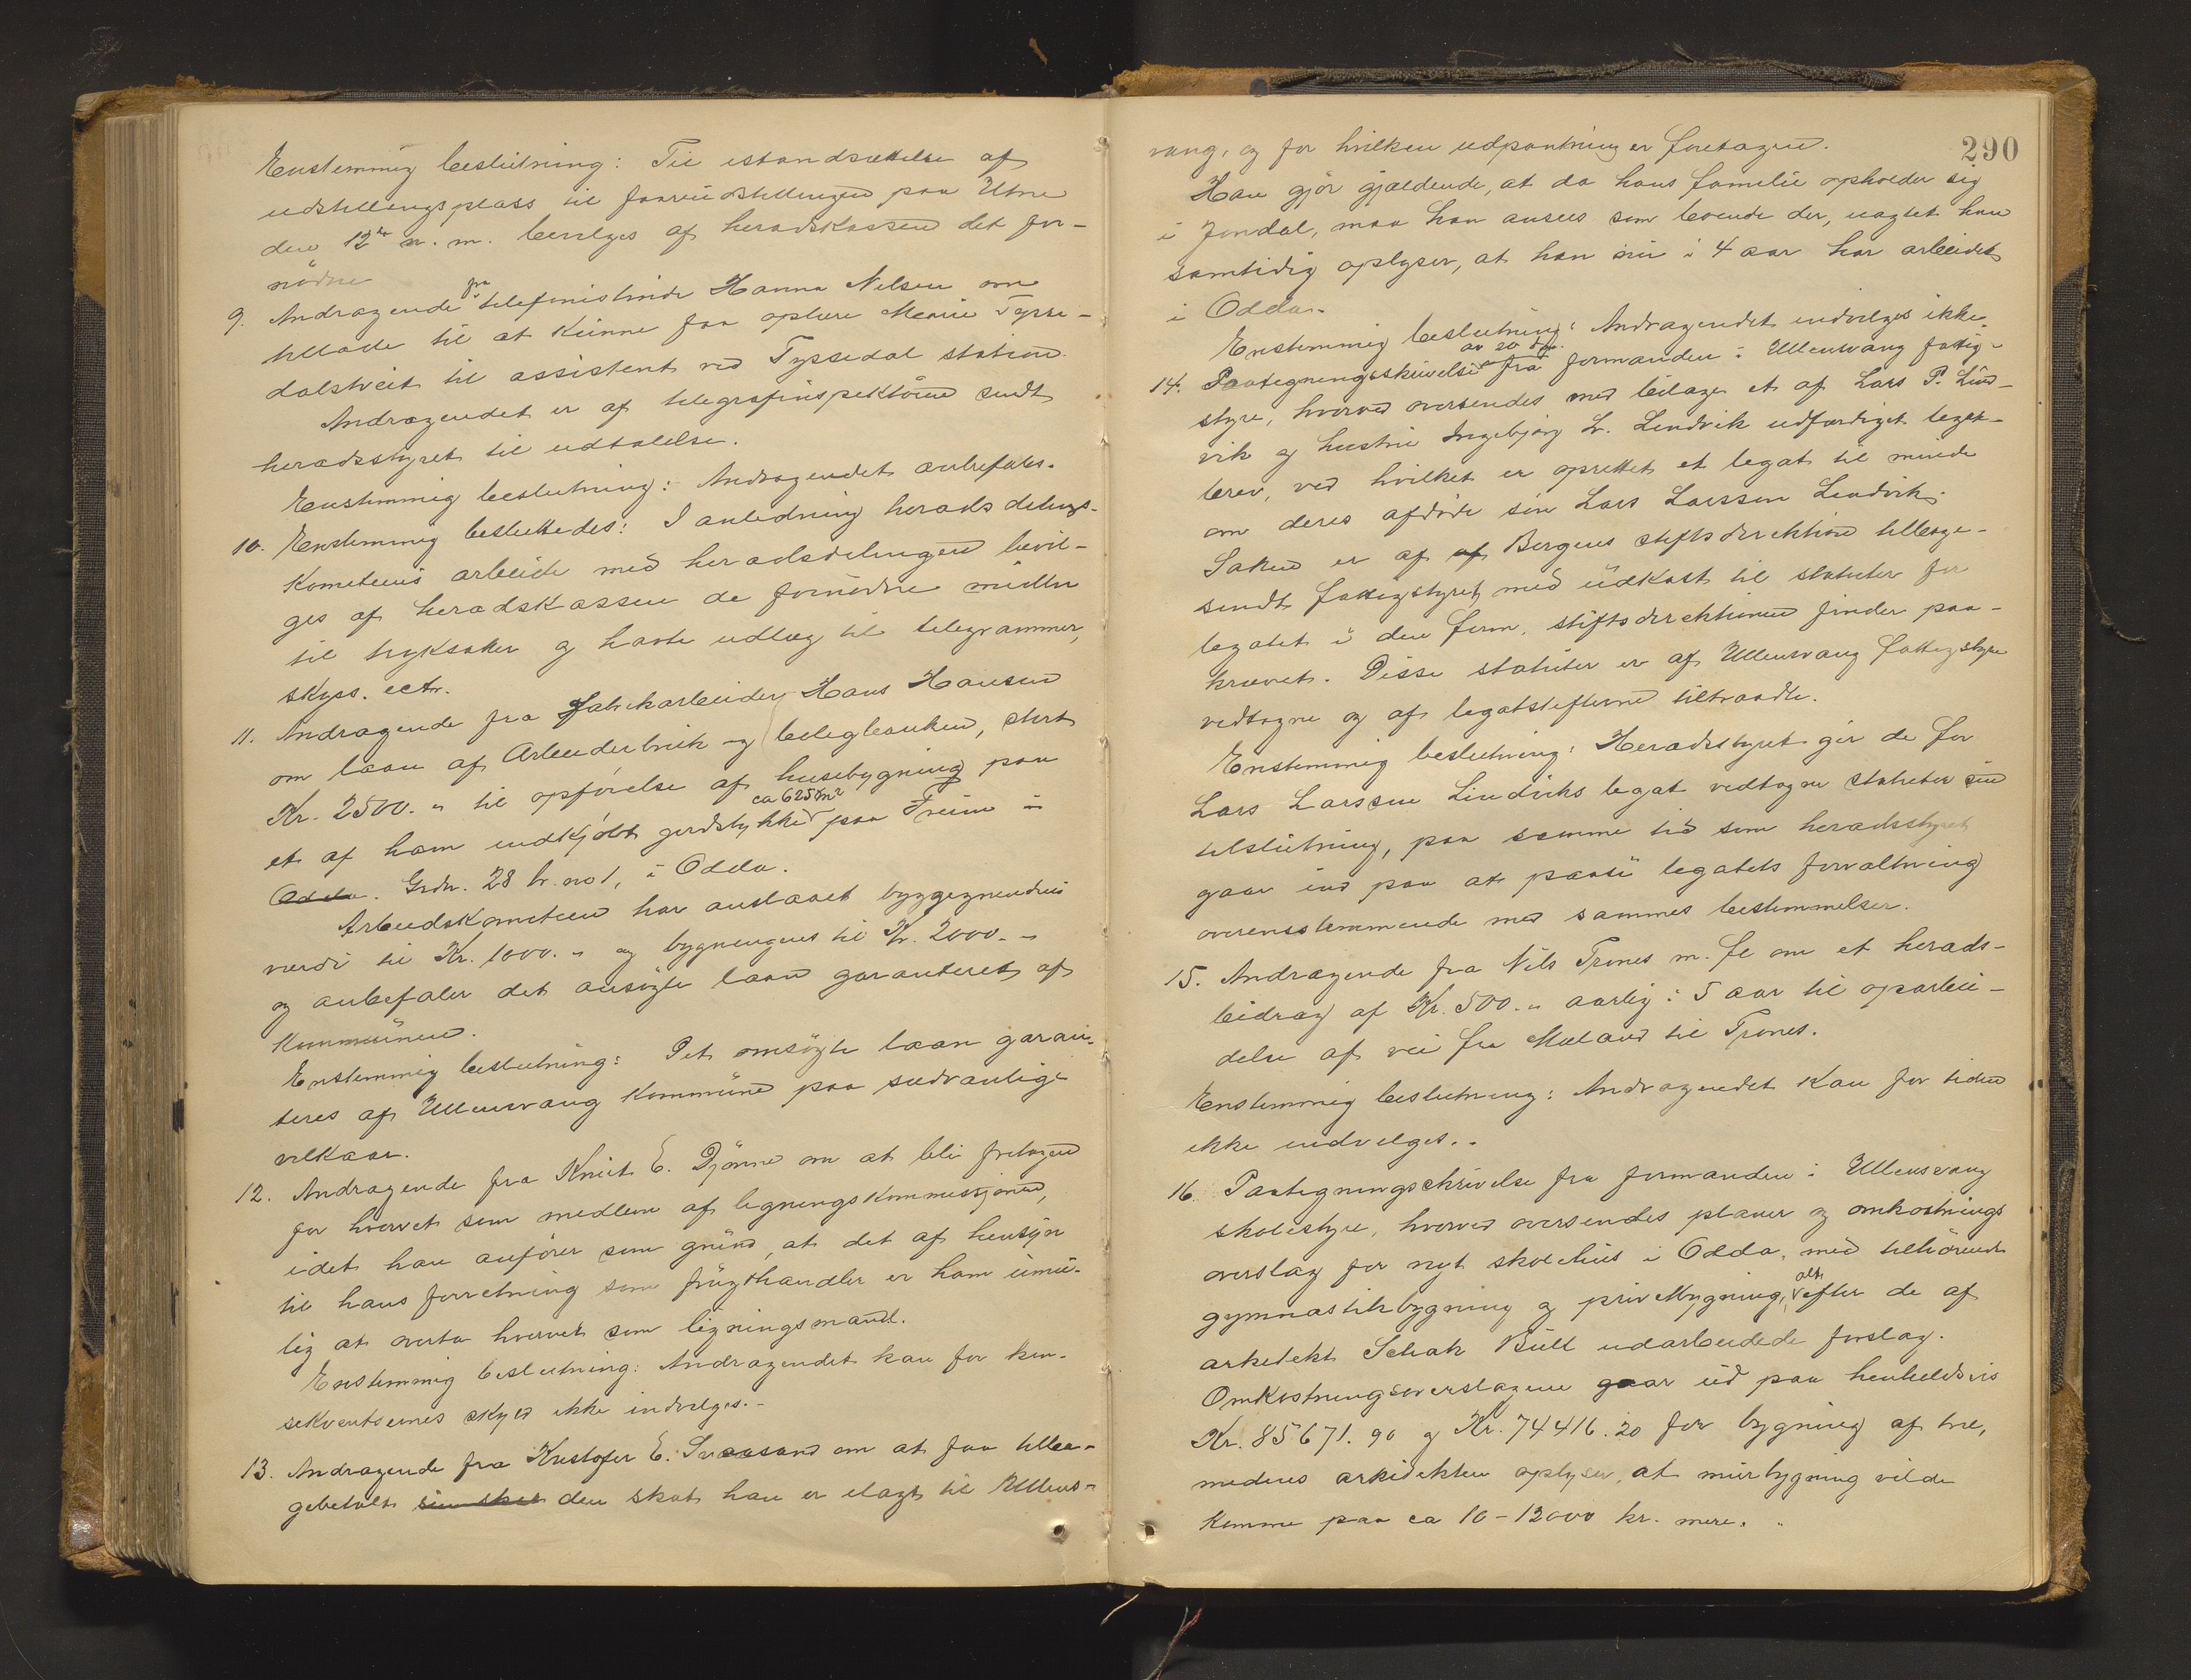 Enstemmig beslutning: Til istandsættelse af
udstillingsplass til faareudstillingen paa Utne
den 12te n. m. bevilges af heradskassen det for-
nödne
9. Andragende fra telefonistinde Hanna Nelsen om
tillade til at kunne faa oplære Marie Tysse-
dalstveit til assistent ved Tyssedal station.
Andragendet er af telegrafinspektören sendt
heradsstyret til udtalelse.
Enstemmig beslutning: Andragendet anbefales.
10. Enstemmig besluttedes: I anledning heradsdelings-
komiteens arbeide med heradsdelingen bevil-
ges af heradskassen de fornödne midler
til tryksaker og havte utlæg til telegrammer,
skyss. ect.
11. Andragende fra Fabrikarbeider Hans Hansen
om laan af Arbeiderbruk og boligbanken, stort
Kr. 2500.- til opförelse af husebygning paa
et af ham indkjöbt jordstykke ca 625 m² paa Freim i
Odda. Grdn. 28 br. no 1, i Odda.
Arbeidskomiteen har anslaaet byggegrundens
værdi til Kr. 1000.- og bygningens til Kr. 2000.-
og anbefaler det ansögte laan garanteret af
kommunen.
Enstemmig beslutning: Det omsögte laan garan-
teres af Ullensvang kommune paa sædvanlige
vilkaar.
12. Andragende fra Knut E. Djönne om at bli fritagen
for hvervet som medlem af ligningskommissjonen,
idet han anförer som grund, at det af hensyn
til hans forretning som frugthandler er ham umu-
lig at overta hvervet som ligningsmand.
Enstemmig beslutning: Andragendet kan for kon-
sekventsernes skyld ikke indvilges.-
13. Andragende fra Kristofer E. Samsand om at faa tilba-
gebetalt sin skat den skat han er ilagt til Ullens-
290
vang, og for hvilken udpantning er foretagen.
Han gjör gjældende, at da hans familie opholder sig
i Jondal, maa han ansees som boende der, uagtet han
samtidig oplyser, at han nu i 4 aar har arbeidet
i Odda.
Enstemmig beslutning: Andragendet indvilges ikke.
14. Paategningsskrivelse av 20 ds. fra formanden i Ullensvang fattig-
styre, hvorved oversendes med bilage et af Lars P. Lind-
vik og hustru Ingebjörg L. Lindvik udfærdiget legat-
brev, ved hvilket er oprettet et legat til minde
om deres afdöde sön Lars Larssen Lindvik.
Saken er af af Bergens stiftsdirektion tilbage-
sendt fattigstyret med udkast til statuter for
legatet i den form, stiftsdirektionen finder paa-
krævet. Disse statuter er af Ullensvang fattigstyre
vedtagne og af legatstifterne tiltraadte.
Enstemmig beslutning: Heradsstyret gir de for
Lars Larssen Lindviks legat vedtagne statuter sin
tilslutning, paa samme tid som heradsstyret
gaar ind paa at paase legatets forvaltning
overensstemmende med sammes bestemmelser.
15. Andragende fra Nils Trones m. fl om et herads-
bidrag af Kr. 500.- aarlig i 5 aar til oparbei-
delse af vei fra Mæland til Trones.
Enstemmig beslutning: Andragendet kan for tiden
ikke indvilges.-
16. Paategningsskrivelse fra formanden i Ullensvang
skolestyre, hvorved oversendes planer og omkostnings
overslag for nyt skolehus i Odda, med tilhörende
gymnastikbygning og privetbygning, alt efter de af
arkitekt Schak Bull udarbeidede forslag.
Omkostningsoverslagene gaar ud paa henholdsvis
Kr. 85671.90 og Kr. 74416.20 for bygning af træ,
medens arkitekten oplyser, at murbygning vilde
komme paa ca 10-12000 kr. mere.